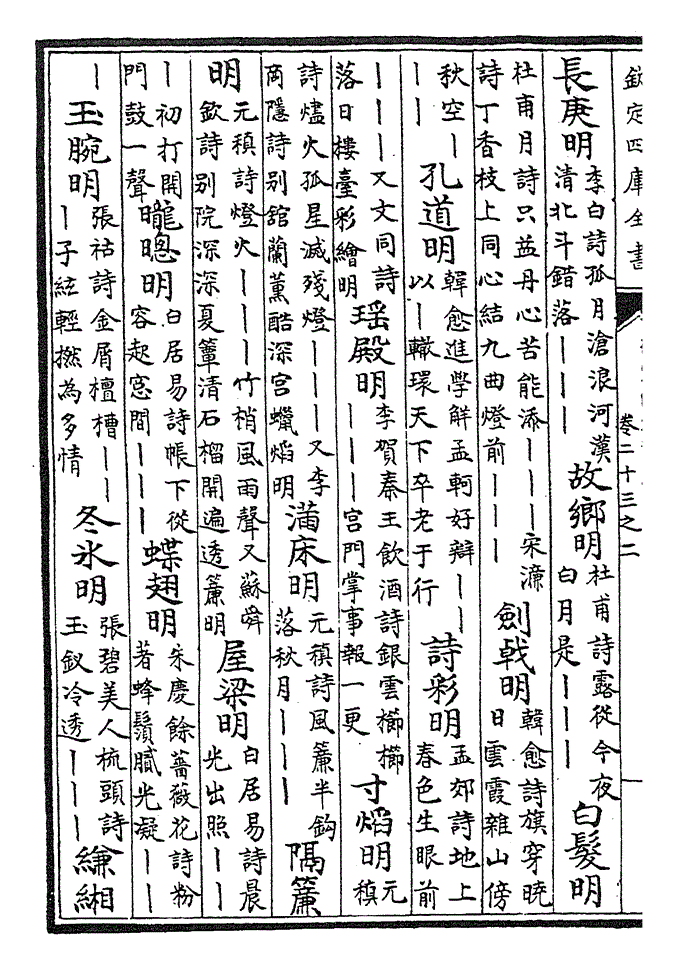 欽定四庫全書 卷二十三之二
長庚明李白詩孤月滄浪河漢清北斗錯落丨丨丨故鄉明杜甫詩露從今夜白月是丨丨丨白髮明
杜甫月詩只益丹心苦能添丨丨丨宋濂詩丁香枝上同心結九曲燈前丨丨丨劍戟明韓愈詩旗穿曉日雲霞雜山傍
秋空丨丨丨孔道明韓愈進學解孟軻好辯丨丨以丨轍環天下卒老于行詩彩明孟郊詩地上春色生眼前
丨丨丨又文同詩落日樓臺彩繪明瑶殿明李賀秦王飲酒詩銀雲櫛櫛丨丨丨宮門掌事報一更寸焰明元稹
詩燼火孤星滅殘燈丨丨丨又李商隱詩别舘蘭薰酷深宮蠟焰明滿床明元稹詩風簾半鈎落秋月丨丨丨隔簾
明元稹詩燈火丨丨丨竹梢風雨聲又蘇舜欽詩别院深深夏簟清石榴開遍透簾明屋梁明白居易詩晨光出照丨丨
丨初打開門鼓一聲曨明白居易詩帳下從容起窓間丨丨丨蝶翅明朱慶餘薔薇花詩粉著蜂鬚膩光凝丨丨
丨玉腕明張祜詩金屑檀槽丨丨丨子絃輕撚為多情冬氷明張碧美人梳頭詩玉釵冷透丨丨丨縑緗